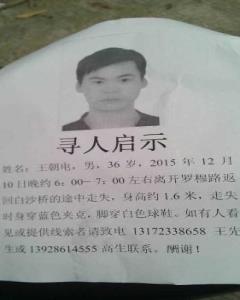 寻人启示
姓名：王朝电，男，36 岁，2015 年 12 月
10 日晚约 6：00—7：00 左右离开罗穆路返
回白沙桥的途中走失，身高约 1.6 米，走失
时身穿蓝色夹克，脚穿白色球鞋。如有人看
见或提供线索者请致电 13172338658 王先
生或 13928614555 高生联系。酬谢！